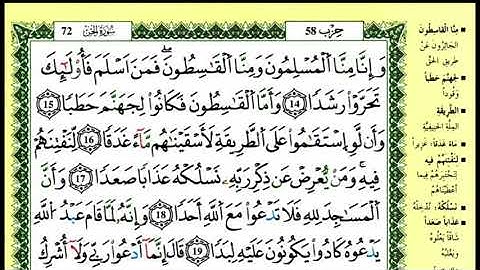 72 سُورَةُ الجِنّ حِزْب 58
وَإِنَّا مِنَّا اَ۬لْمُسْلِمُونَ وَمِنَّا اَ۬لْقَٰسِطُونَۖ فَمَنَ اَسْلَمَ فَأُوْلَٰٓئِكَ
تَحَرَّوْاْ رَشَداٗ 14 وَأَمَّا اَ۬لْقَٰسِطُونَ فَكَانُواْ لِجَهَنَّمَ حَطَباٗ 15
وَأَن لَّوِ اِ۪سْتَقَٰمُواْ عَلَى اَ۬لطَّرِيقَةِ لَأَسْقَيْنَٰهُم مَّآءً غَدَقاٗ 16 لِّنَفْتِنَهُمْ
فِيهِۖ وَمَنْ يُّعْرِضْ عَن ذِكْرِ رَبِّهِۦ نَسْلُكْهُ عَذَاباٗ صَعَداٗ 17 وَأَنَّ
اَ۬لْمَسَٰجِدَ لِلهِ فَلَا تَدْعُواْ مَعَ اَ۬للَّهِ أَحَداٗ 18 وَإِنَّهُۥ لَمَّا قَامَ عَبْدُ اُ۬للَّهِ
يَدْعُوهُ كَادُواْ يَكُونُونَ عَلَيْهِ لِبَداٗ 19 قَالَ إِنَّمَآ أَدْعُواْ رَبِّے وَلَآ أُشْرِكُ
مِنَّا الْقَاسِطُونَ
الجَائِرُونَ عَنْ
طَرِيقِ الحَقِّ
لِجَهَنَّمَ حَطَبًا
وَقُودًا
الطَّرِيقَةِ
المِلَّةِ الحَنِيفِيَّةِ
مَاءً غَدَقًا: غَزِيرًا
لِنَفْتِنَهُمْ فِيهِ
لِنَخْتَبِرَهُمْ فِيمَا
أَعْطَيْنَاهُمْ
نَسْلُكْهُ: نُدْخِلْهُ
عَذَابًا صَعَدًا
شَاقًّا يَعْلُوهُ